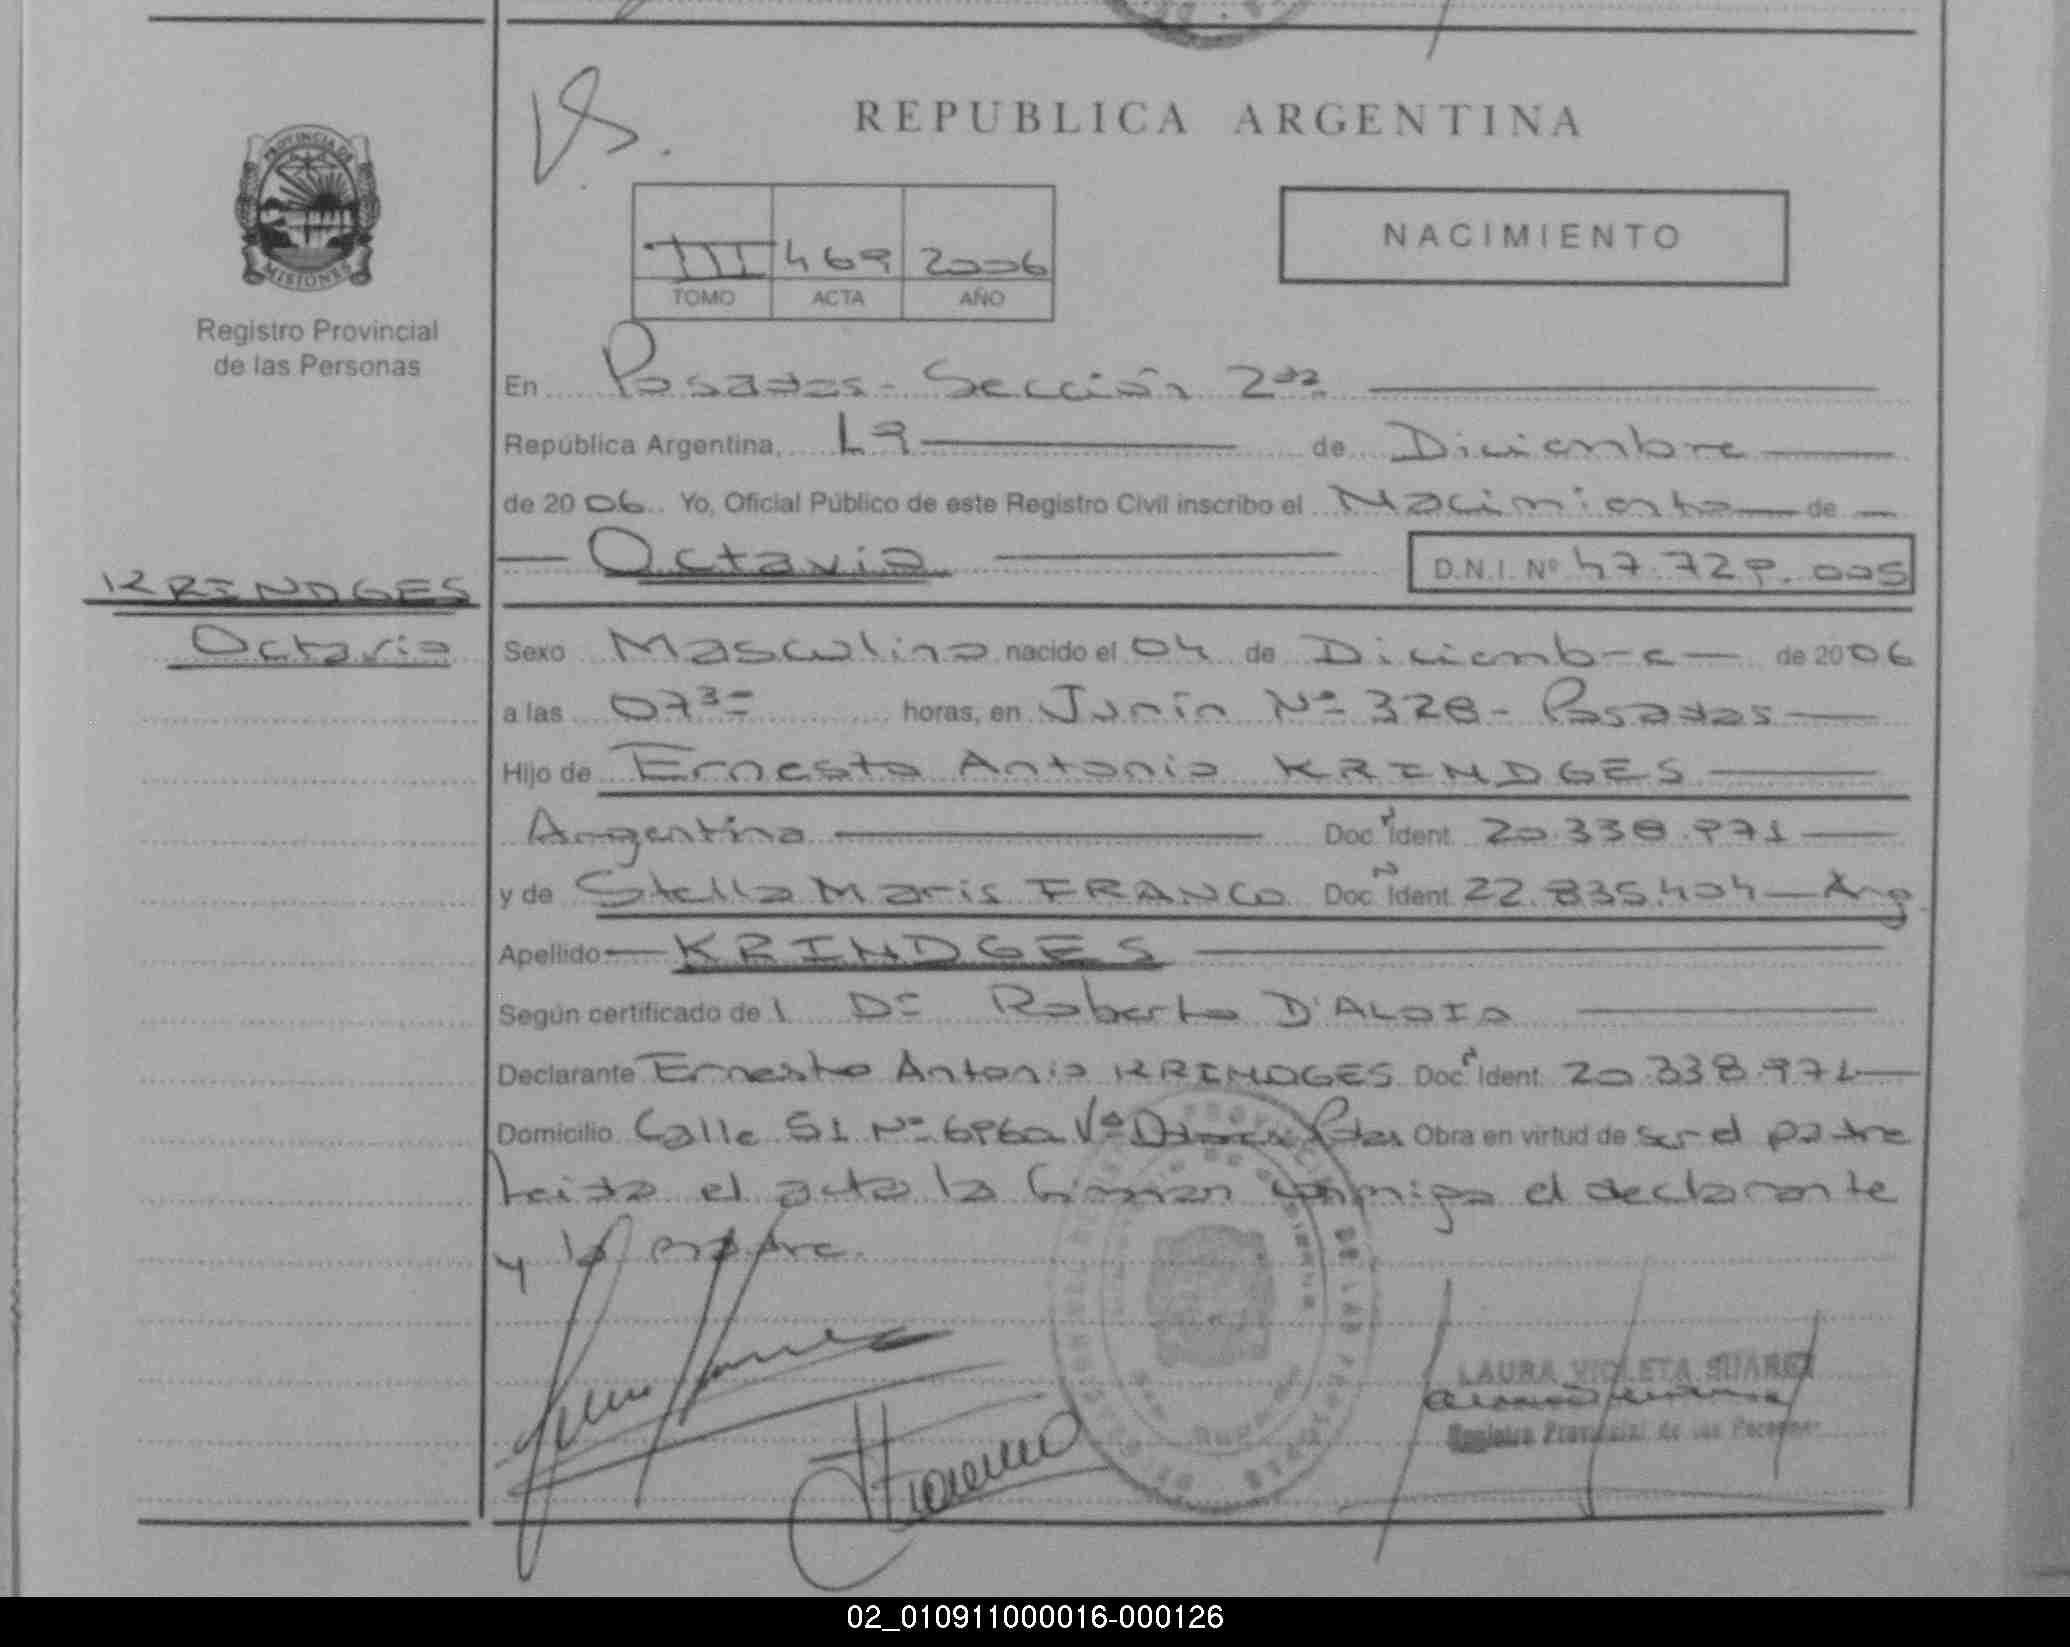 REPUBLICA ARGENTINA
PROVINCIA DE
MISIONES
Registro Provincial
de las Personas
III 469 2006
TOMO ACTA AÑO
NACIMIENTO
En Posadas - Sección 2da
República Argentina, 19 de Diciembre
de 2006 Yo, Oficial Público de este Registro Civil inscribo el Nacimiento de
Octavio D.N.I. Nº 47.729.005
KRINDGES
Octavio
Sexo Masculino nacido el 04 de Diciembre de 2006
a las 07 30 horas, en Junín Nº 328 - Posadas
Hijo de Ernesto Antonio KRINDGES
Argentino Doc N Ident. 20.338.971
y de Stella Maris FRANCO Doc N Ident. 22.835.404 - Arg
Apellido KRINDGES
Según certificado del Dr Roberto D'ALOIO
Declarante Ernesto Antonio KRINDGES Doc N Ident. 20.338.971
Domicilio Calle 51 Nº 6960 Vº Pdas Obra en virtud de ser el padre
Leida el acta la firman conmigo el declarante
y la madre.
LAURA VIOLETA SUAREZ
Registro Provincial de las Personas
02_010911000016-000126